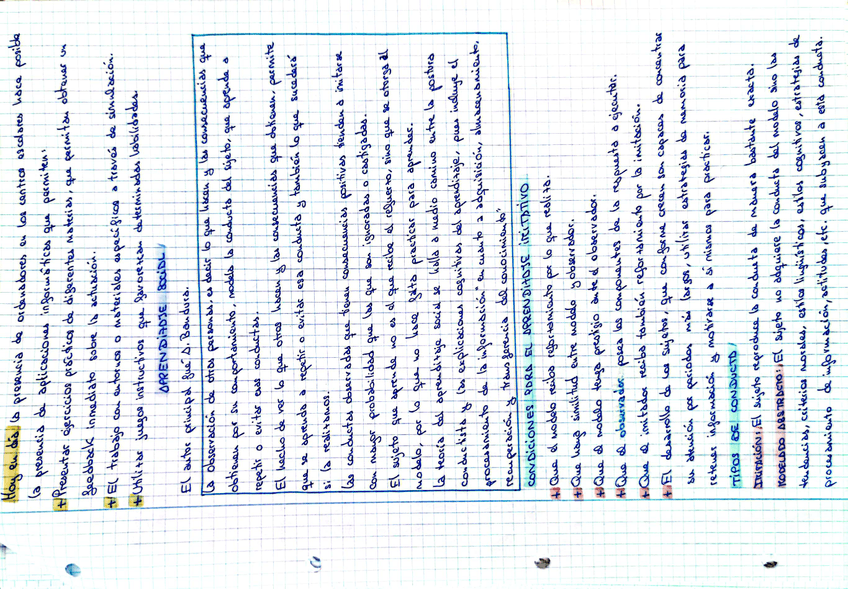 Hoy en día, la presencia de ordenadores en los centros escolares hace posible
la presencia de aplicaciones informáticas que permiten:
+ Presentar ejercicios prácticos de diferentes materias, que permitan obtener un
feedback inmediato sobre la actuación.
+ El trabajo con entornos o materiales específicos a través de simulación.
+ Utilizar juegos instructivos que favorezcan determinadas habilidades.
APRENDIZAJE SOCIAL
El autor principal fué A. Bandura.
La observación de otras personas, es decir lo que hacen y las consecuencias que
obtienen por su comportamiento, modela la conducta del sujeto, que aprende a
repetir o evitar esas conductas.
El hecho de ver lo que otros hacen y las consecuencias que obtienen, permite
que se aprenda a repetir o evitar esa conducta y también lo que sucederá
si la realizamos.
Las conductas observadas que tienen consecuencias positivas tienden a imitarse
con mayor probabilidad que las que son ignoradas o castigadas.
El sujeto que aprende no es el que recibe el refuerzo, sino que se otorga al
modelo, por lo que no hace falta practicar para aprender.
La teoría del aprendizaje social se halla a medio camino entre la postura
conductista y las explicaciones cognitivas del aprendizaje, pues incluye el
procesamiento de la información "en cuanto a adquisición, almacenamiento,
recuperación y transferencia del conocimiento"
CONDICIONES PARA EL APRENDIZAJE IMITATIVO
+ Que el modelo reciba reforzamiento por lo que realiza.
+ Que haya similitud entre modelo y observador.
+ Que el modelo tenga prestigio ante el observador.
+ Que el observador posea los componentes de la respuesta a ejecutar.
+ Que el imitador reciba también reforzamiento por la imitación.
+ El desarrollo de los sujetos, que conforme crecen son capaces de concentrar
su atención por periodos más largos, utilizar estrategias de memoria para
retener información y motivarse a sí mismos para practicar.
TIPOS DE CONDUCTA
IMITACIÓN: El sujeto reproduce la conducta de manera bastante exacta.
MODELADO ABSTRACTO: El sujeto no adquiere la conducta del modelo sino las
tendencias, criterios morales, estilos lingüísticos, estilos cognitivos, estrategias de
procesamiento de información, actitudes, etc. que subyacen a esta conducta.